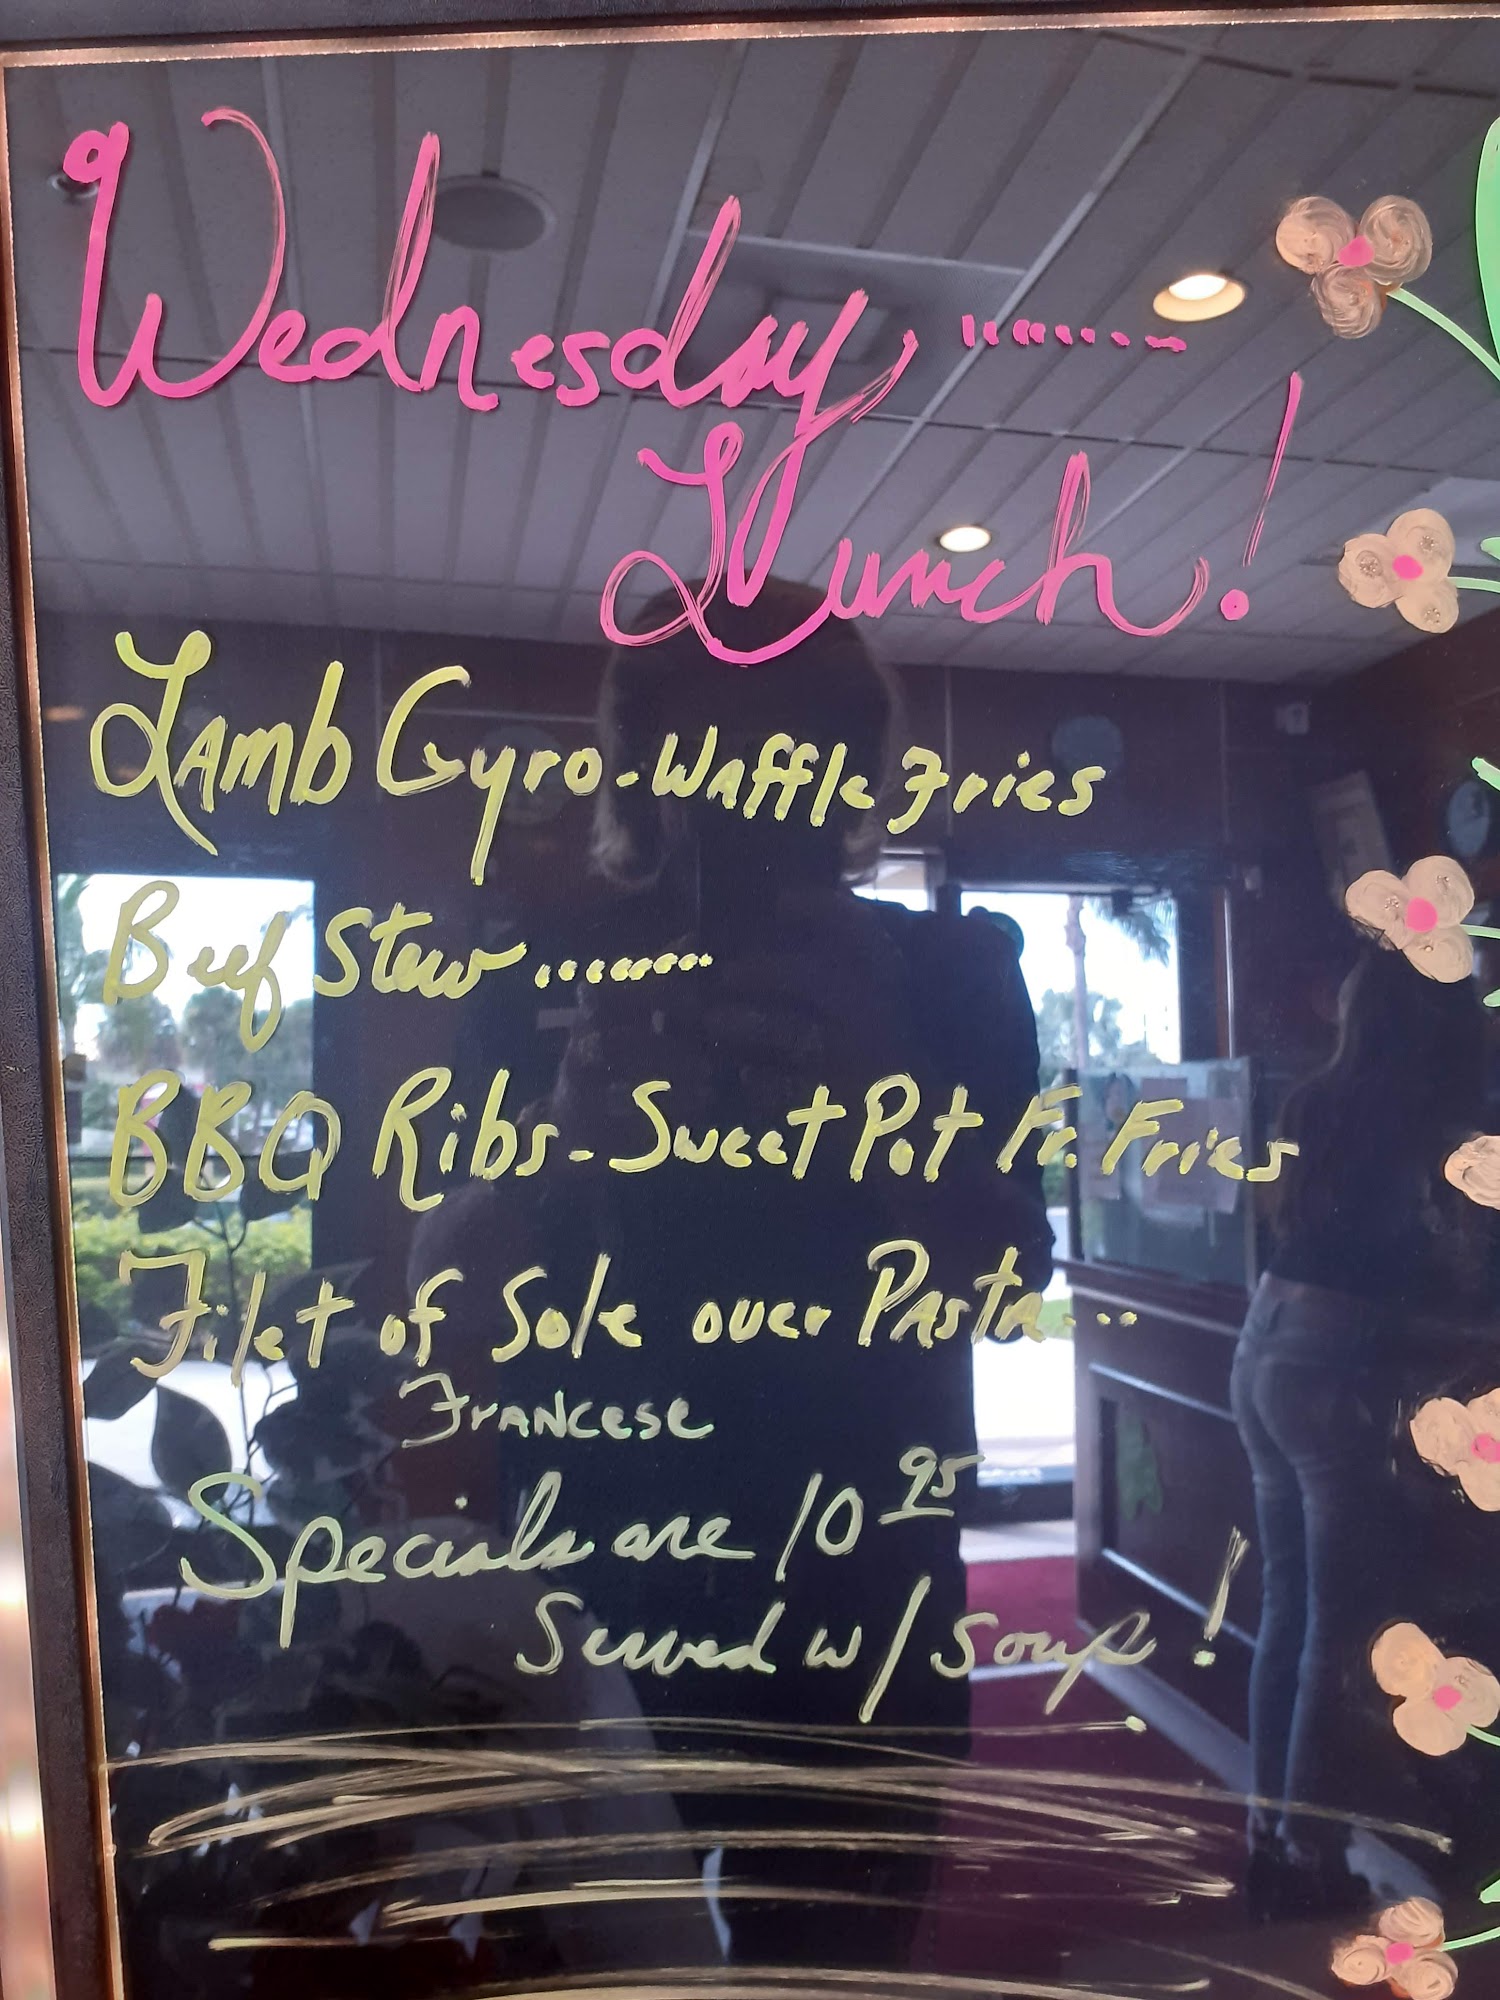 Wednesday .........
Lunch!
Lamb Gyro - Waffle Fries
Beef Stew .........
BBQ Ribs - Sweet Pot Fr. Fries
Filet of Sole over Pasta...
Francese
Specials are 10 95
Served w/ Soup!